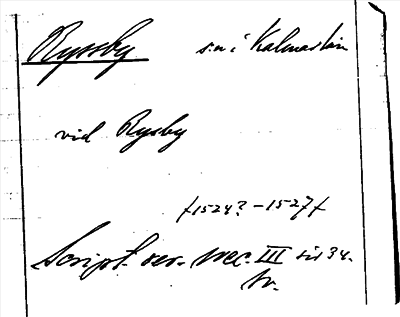 Ryssby sn i Kalmar län
vid Rysby
/1524? - 1527/
Script. rer. svec. III sid 34.